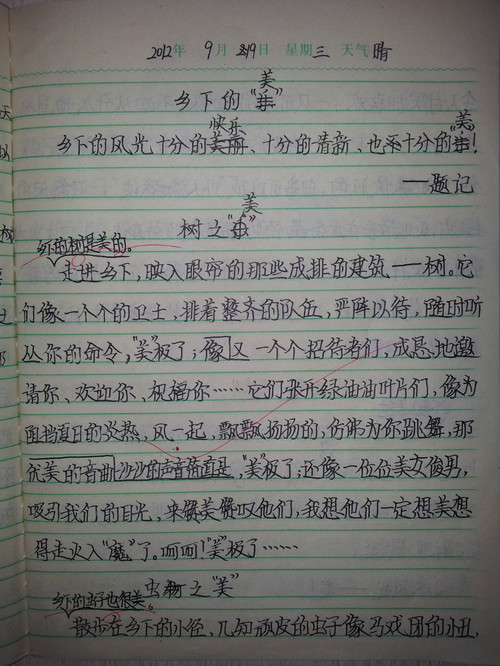 2012年 9月 19日 星期三 天气晴
乡下的"美"
乡下的风光十分的快乐、十分的清新、也乐十分的美!
——题记
树之"美"
乡下的树是美的。
走进乡下,映入眼帘的那些成排的建筑——树。它
们像一个个的卫士,排着整齐的队伍,严阵以待,随时听
从你的命令,"美"极了;像又一个个招待者们,成恳地邀
请你、欢迎你、祝福你……它们张开绿油油叶片们,像为
阻挡夏日的炎热,风一起,飘飘扬扬的,仿佛为你跳舞,那
优美的音曲沙沙的声音简直甚,"美"极了;还像一位位美女俊男,
吸引我们的目光,来赞美赞叹他们,我想他们一定想美想
得走火入"魔"了。呵呵!"美"极了……
虫之"美"
乡下的虫子也很美。
散步在乡下的小径,几知顽皮的虫子像马戏团的小丑,